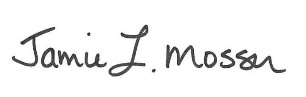 Jamie L. Mosser